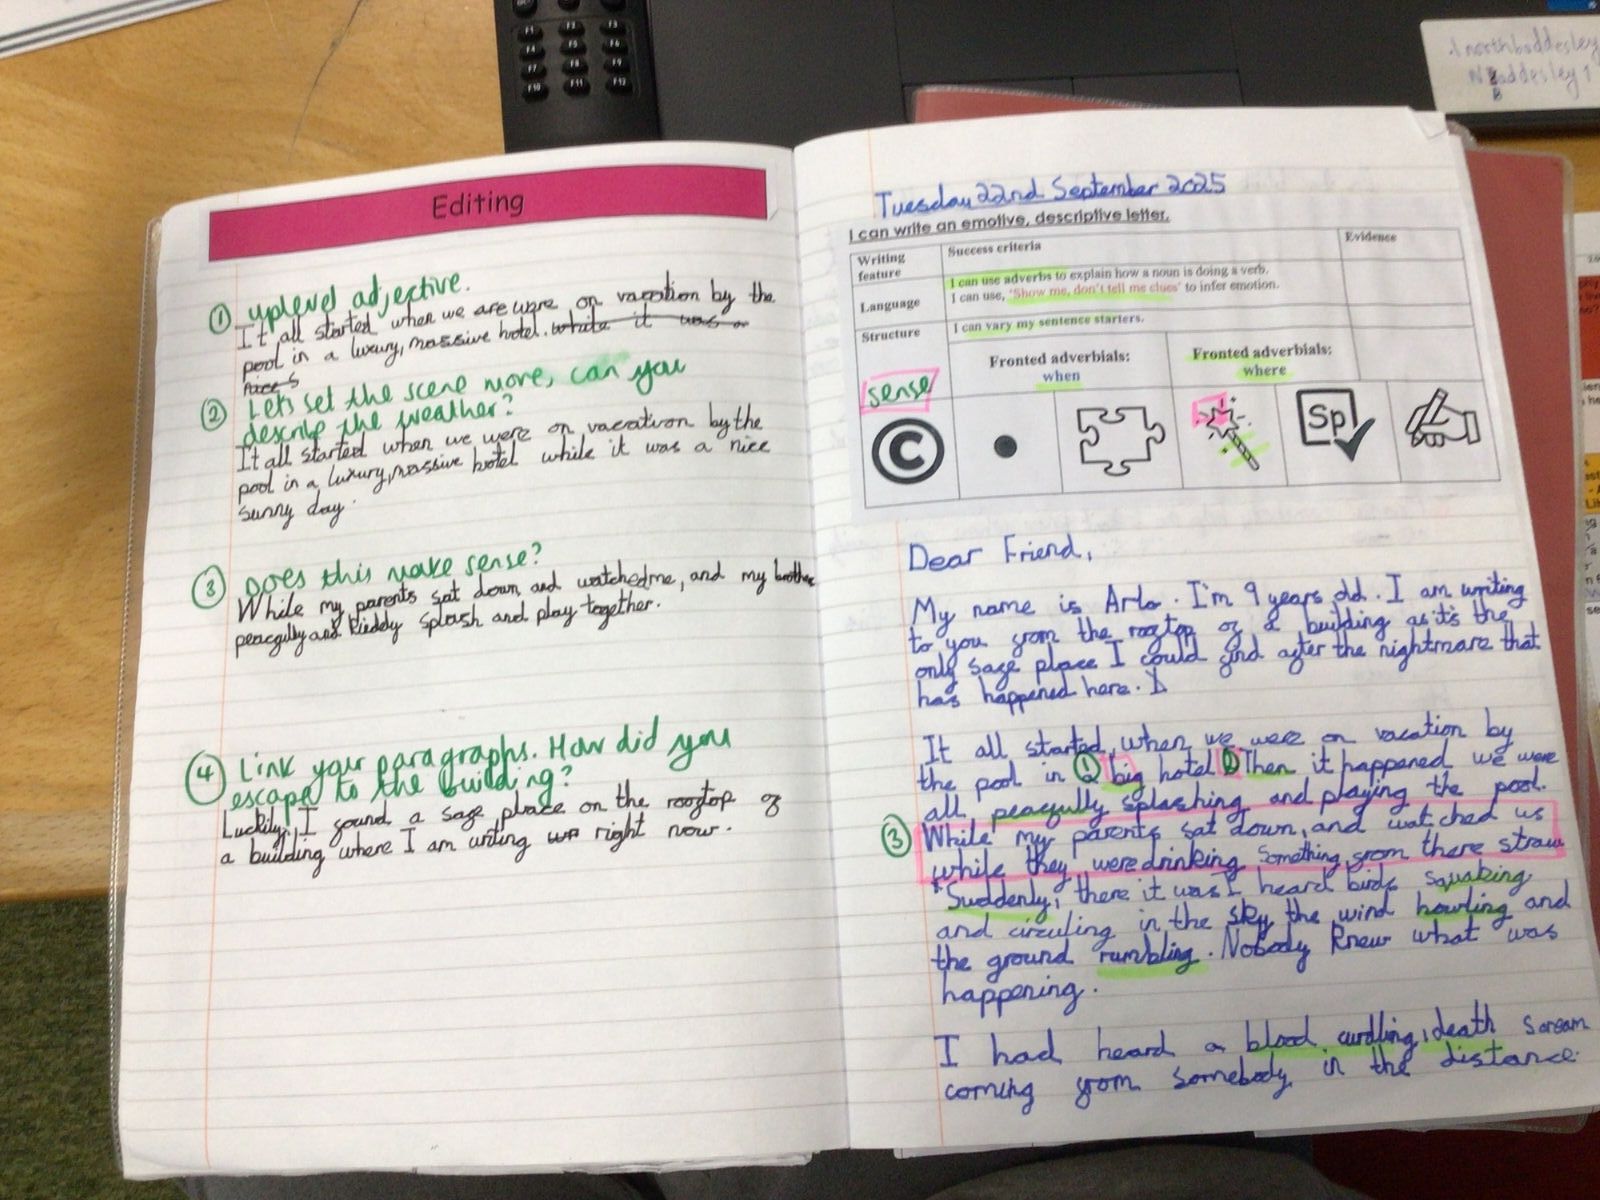 Editing
① uplevel adjective.
It all started when we are were on vacation by the
pool in a luxury, massive hotel. while it was a
nice s
② Lets set the scene more, can you
describe the weather?
It all started when we were on vacation by the
pool in a luxury, massive hotel while it was a nice
sunny day.
③ Does this make sense?
While my parents sat down, and watched me, and my brother
peacefully and splash and play together.
④ Link your paragraphs. How did you
escape to the building?
Luckily, I found a safe place on the rooftop of
a building where I am writing right now.
Tuesday 22nd September 2025
I can write an emotive, descriptive letter.
Writing feature
Success criteria
Evidence
Language
I can use adverbs to explain how a noun is doing a verb.
I can use, 'Show me, don't tell me clues' to infer emotion.
Structure
I can vary my sentence starters.
Fronted adverbials:
when
Fronted adverbials:
where
sense
©
Sp
Dear Friend,
My name is Arlo. I'm 9 years old. I am writing
to you from the rooftop of a building as it's the
only safe place I could find after the nightmare that
has happened here.
It all started, when we were on vacation by
the pool in ① big hotel ② Then it happened we were
all peacefully splashing and playing the pool.
③ While my parents sat down, and watched us
while they were drinking something from there straw
*Suddenly, there it was I heard birds squaking
and circuling in the sky the wind howling and
the ground rumbling. Nobody knew what was
happening.
I had heard a blood curdling, death scream
coming from somebody in the distance.
F1
F2
F3
F4
F5
F6
F7
F8
F9
F10
F11
F12
northbaddesley